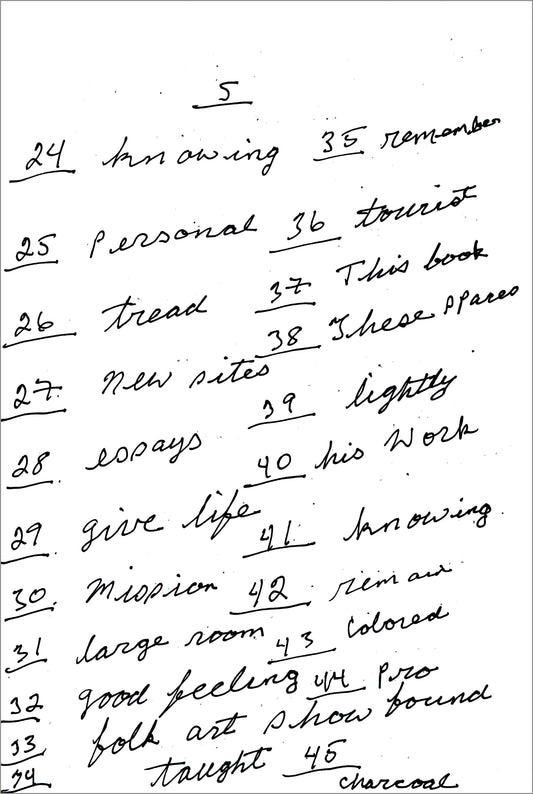 5
24 knowing 35 remember
25 Personal 36 tourist
26 tread 37 This book
38 These spares
27 New sites
39 lightly
28 essays
40 his Work
29 give life
41 knowing
30 Mission 42 remain
31 large room 43 Colored
32 good feeling 44 Pro
33 folk art show found
34 taught 45
charcoal